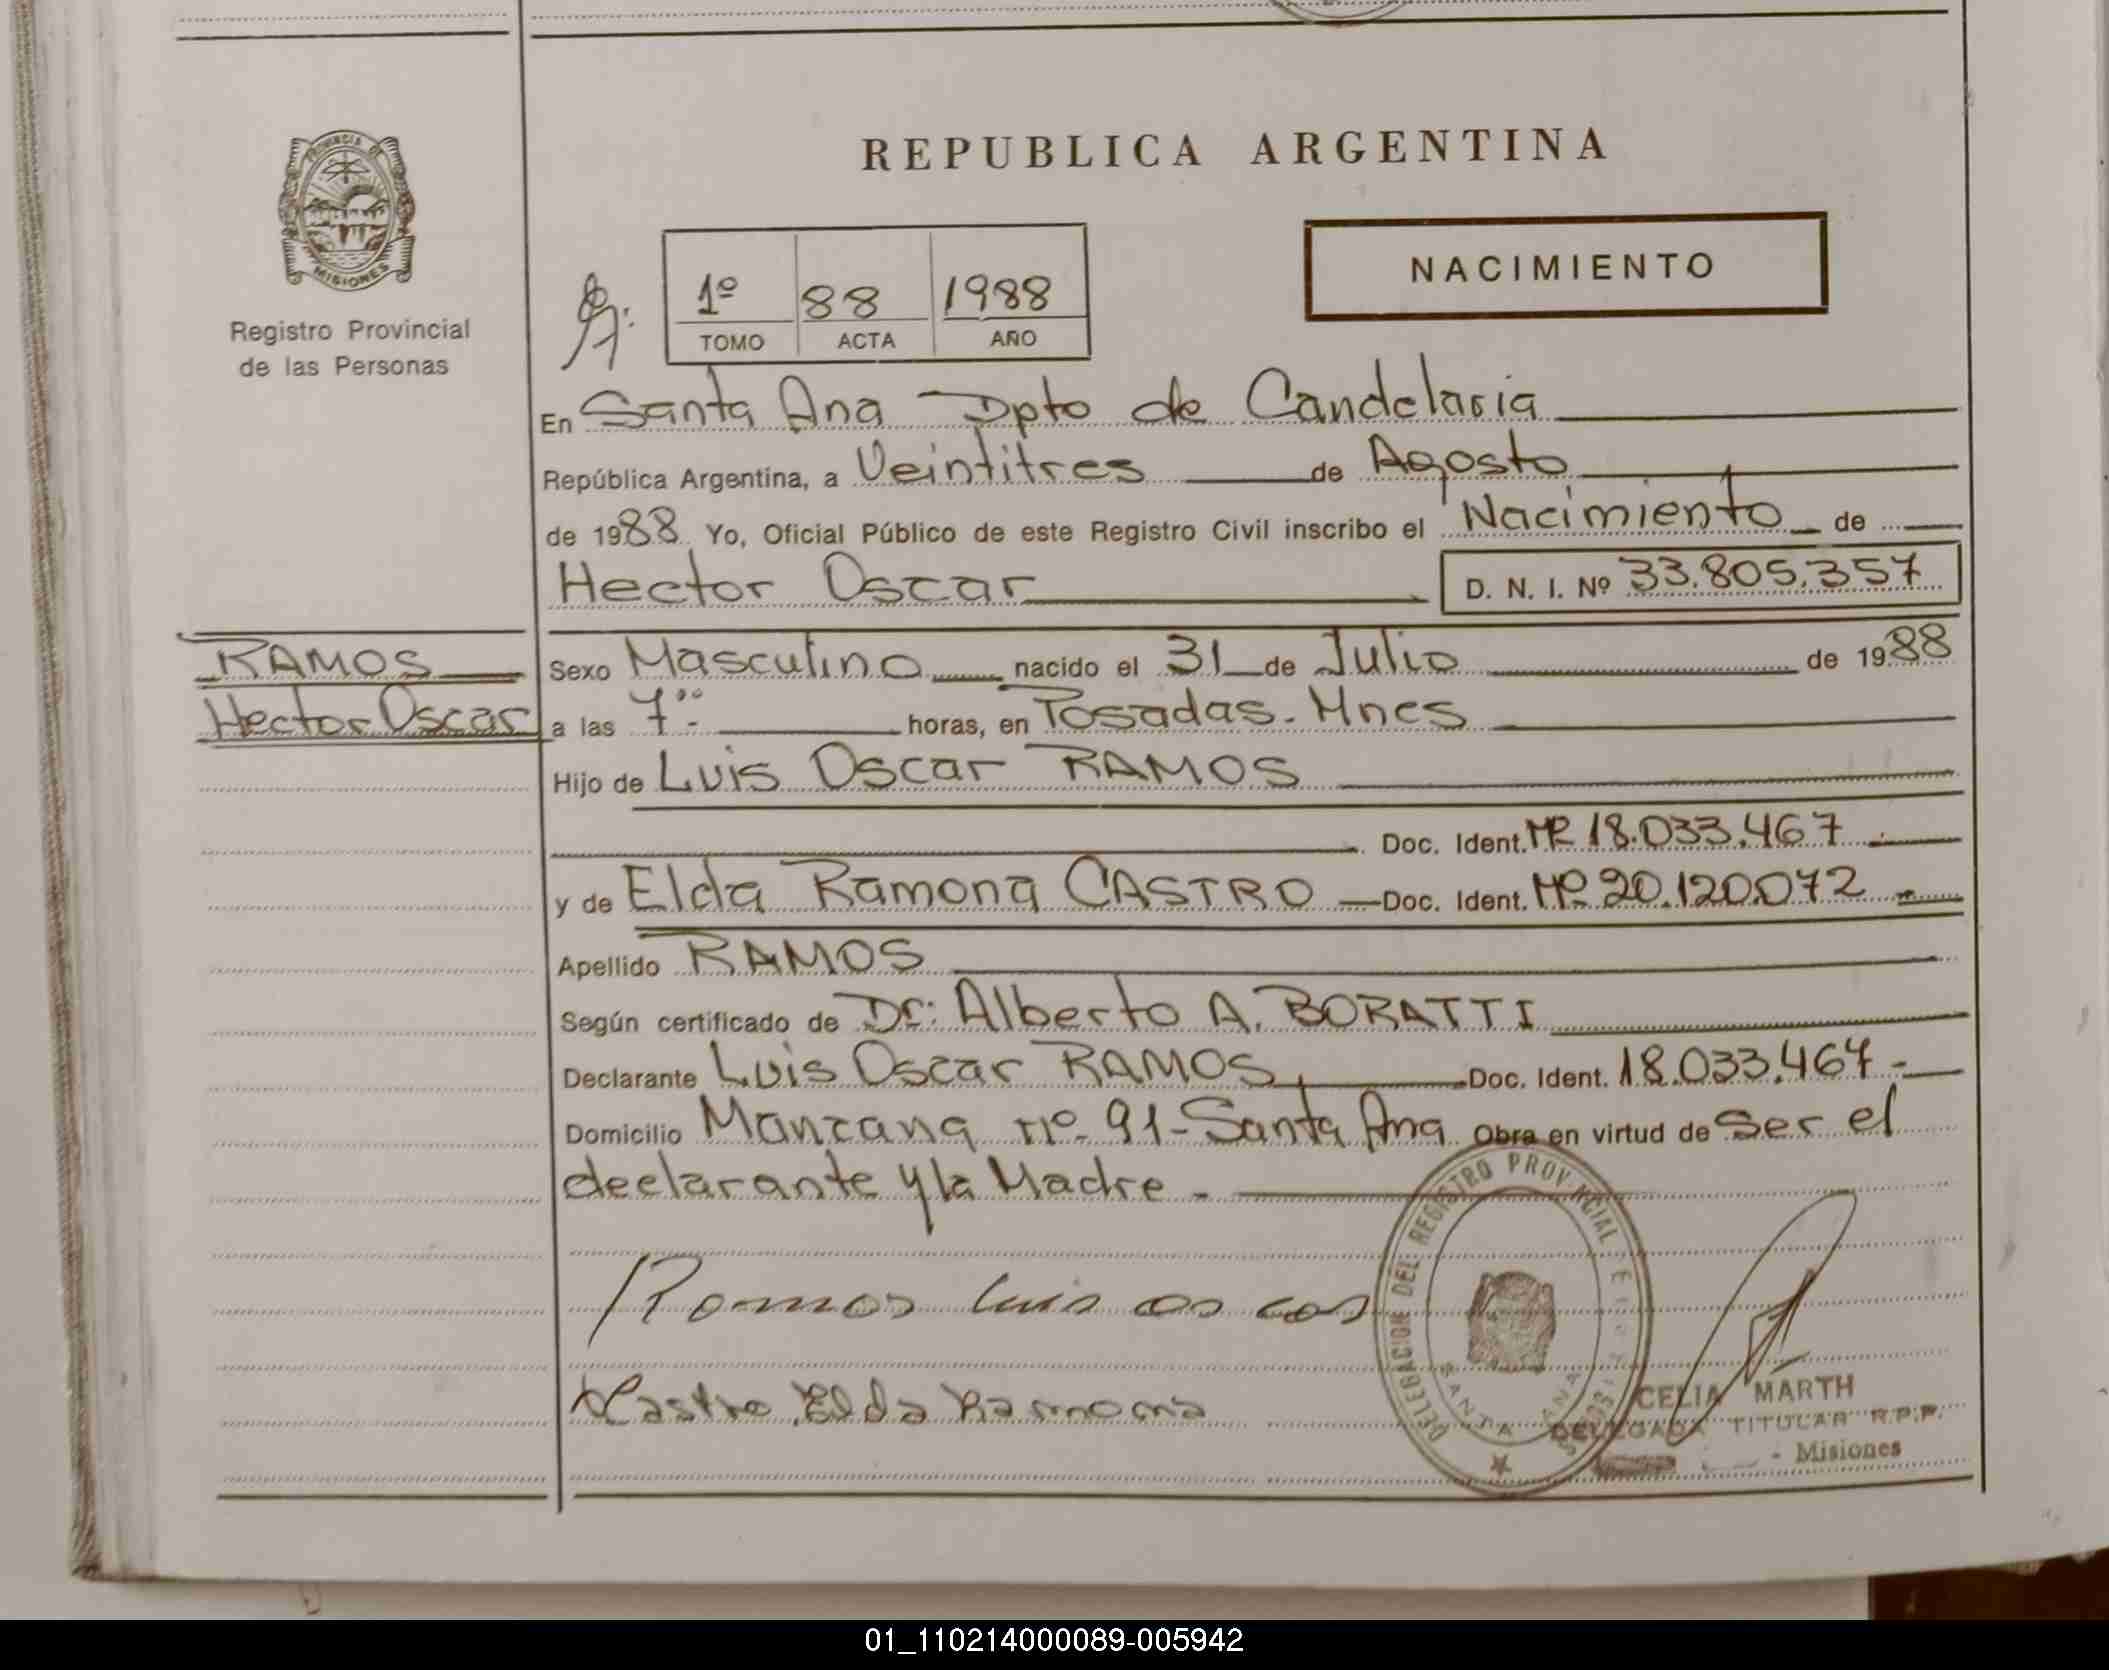 PROVINCIA DE
MISIONES
Registro Provincial
de las Personas
REPUBLICA ARGENTINA
NACIMIENTO
1º 88 1988
TOMO ACTA AÑO
En Santa Ana Dpto de Candelaria
República Argentina, a Veintitres de Agosto
de 1988 Yo, Oficial Público de este Registro Civil inscribo el Nacimiento de
Hector Oscar D. N. I. Nº 33.805.357
RAMOS
Hector Oscar
Sexo Masculino nacido el 31 de Julio de 1988
a las 7.00 horas, en Posadas. Mnes
Hijo de Luis Oscar RAMOS
Doc. Ident. 18.033.467
y de Elda Ramona CASTRO Doc. Ident. Nº 20.120.072
Apellido RAMOS
Según certificado de Dr: Alberto A. BORATTI
Declarante Luis Oscar RAMOS Doc. Ident. 18.033.467
Domicilio Manzana nº 91 - Santa Ana Obra en virtud de Ser el
declarante y la Madre.
Ramos Luis oscar
Castro Elda Ramona
DELEGACION DEL REGISTRO PROVINCIAL
SANTA ANA
CELIA MARTH
DELEGADA TITULAR R.P.P.
- Misiones
01_110214000089-005942